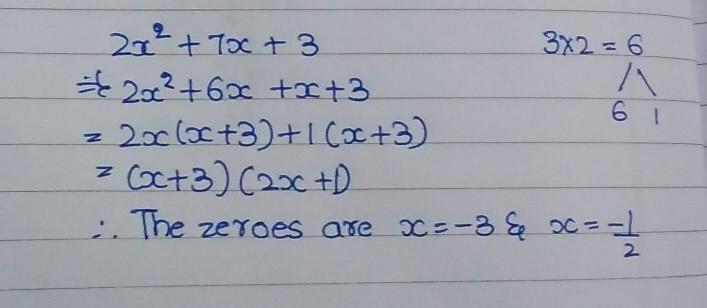 2x² + 7x + 3
3x2 = 6
6 1
⇒ 2x² + 6x + x + 3
= 2x(x+3) + 1(x+3)
= (x+3)(2x+1)
∴ The zeroes are x = -3 & x = -1/2